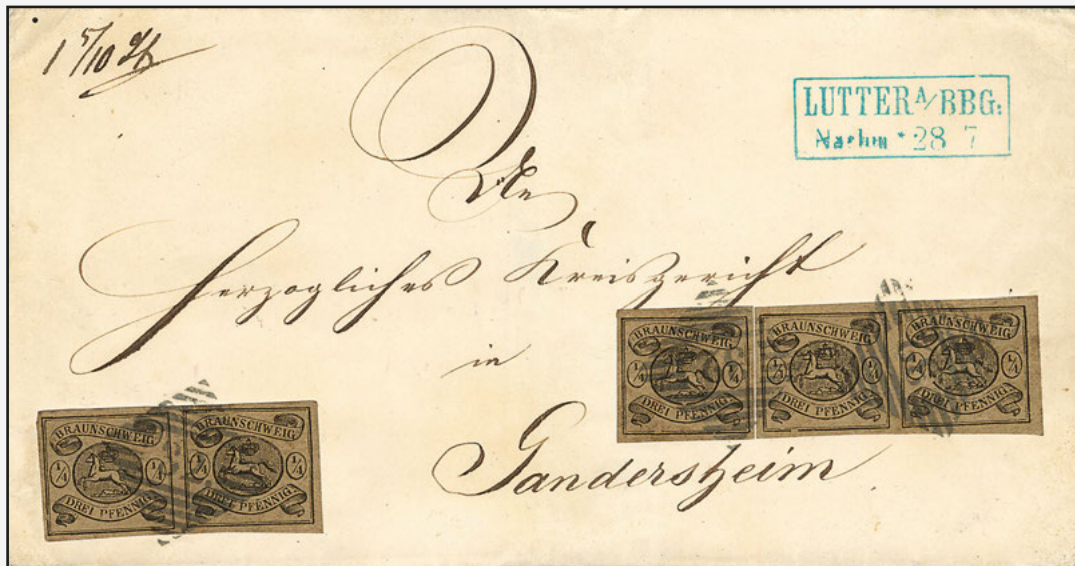 LUTTER A/BBG:
Nachm * 28 7
An
Herzogliches Kreisgericht
in
Gandersheim.
BRAUNSCHWEIG
1/4 1/4
DREI PFENNIG
BRAUNSCHWEIG
1/4 1/4
DREI PFENNIG
BRAUNSCHWEIG
1/4 1/4
DREI PFENNIG
BRAUNSCHWEIG
1/4 1/4
DREI PFENNIG
BRAUNSCHWEIG
1/4 1/4
DREI PFENNIG